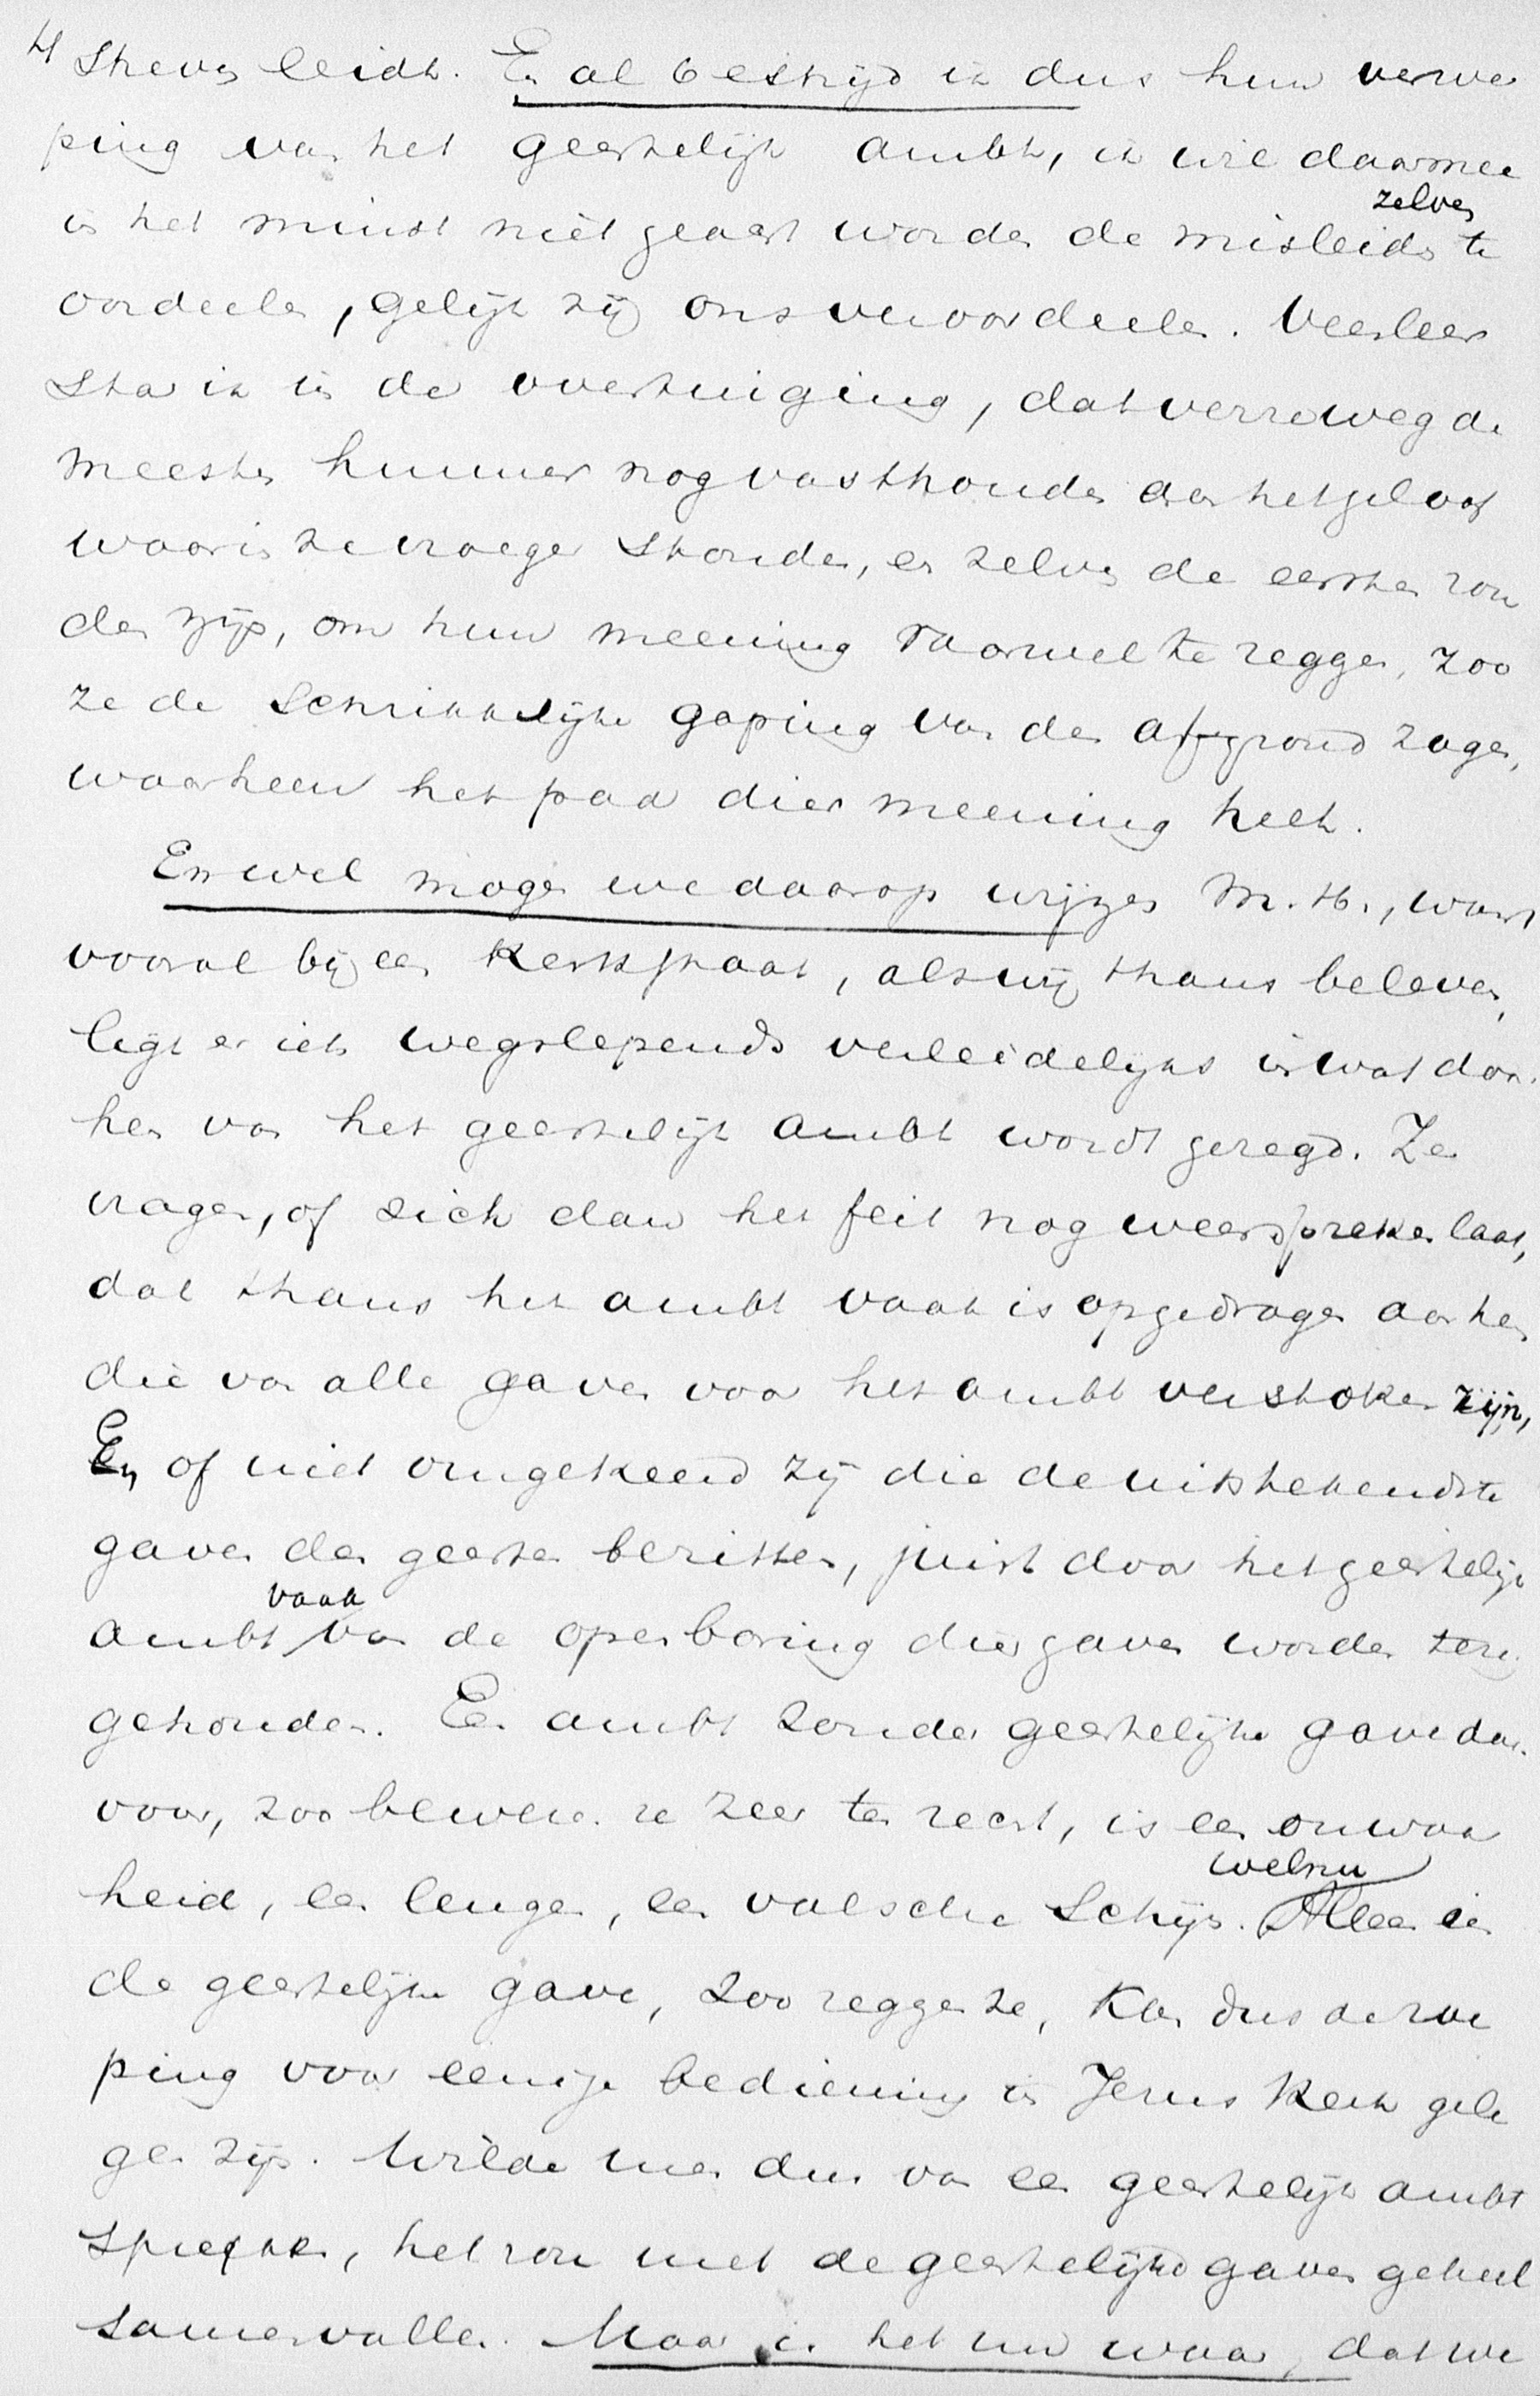 4 streven leidt. En al bestrijd ik dus hun verwer
ping van het geestelijk ambt, ik wil daarmee
in het minst niet geacht worden de misleiden zelven te
oordeelen, gelijk zij ons veroordeelen. Veeleer
sta ik in de overtuiging, dat verreweg de
meesten hunner nog vasthouden aan het geloof
waarin ze vroeger stonden, en zelven de eersten zou
den zijn, om hun meening vaarwel te zeggen, zoo
ze de schrikkelijke gaping van den afgrond zagen,
waarheen het pad dier meening helt.
En wel mogen we daarop wijzen M. H., want
vooral bij een Kerkstaat, als wij thans beleven,
ligt er iets wegslepends verleidelijks in wat door
hen van het geestelijk ambt wordt gezegd. Ze
vragen, of zich dan het feit nog weerspreken laat,
dat thans het ambt vaak is opgedragen aan hen
die van alle gaven voor het ambt verstoken zijn,
En of niet omgekeerd zij die de uitstekendste
gaven des geestes bezitten, juist door het geestelijk
ambt vaak van de openbaring dier gaven worden terug
gehouden. Een ambt zonder geestelijke gave daar
voor, zoo beweren ze zeer te recht, is een onwaar
heid, een leugen, een valsche schijn. Welnu Alleen in
de geestelijke gave, zoo zeggen ze, kan dus de roe
ping voor eenige bediening in Jezus Kerk gele
gen zijn. Wilde men dus van een geestelijk ambt
spreken, het zou met de geestelijke gaven geheel
samenvallen. Maar is het nu waar, dat we